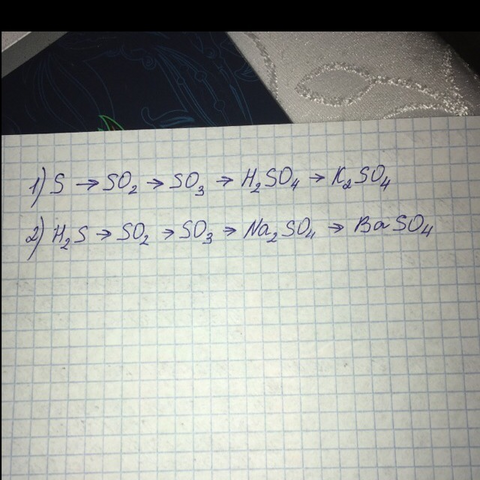 1) S → SO₂ → SO₃ → H₂SO₄ → K₂SO₄
2) H₂S → SO₂ → SO₃ → Na₂SO₄ → BaSO₄